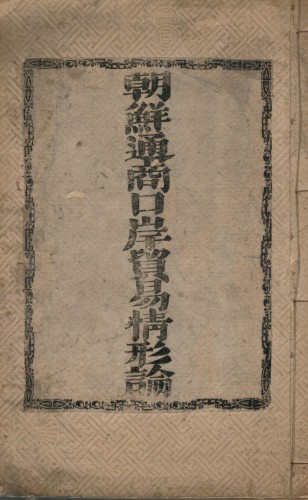 朝鮮通商口岸貿易情形論